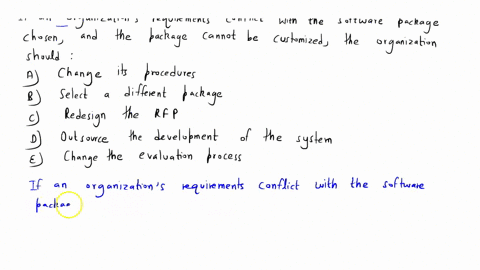 If an organization's requirements conflict with the software package
chosen, and the package cannot be customized, the organization
should :
A) Change its procedures
B) Select a different package
C) Redesign the RFP
D) Outsource the development of the system
E) Change the evaluation process
If an organization's requirements conflict with the software
packae